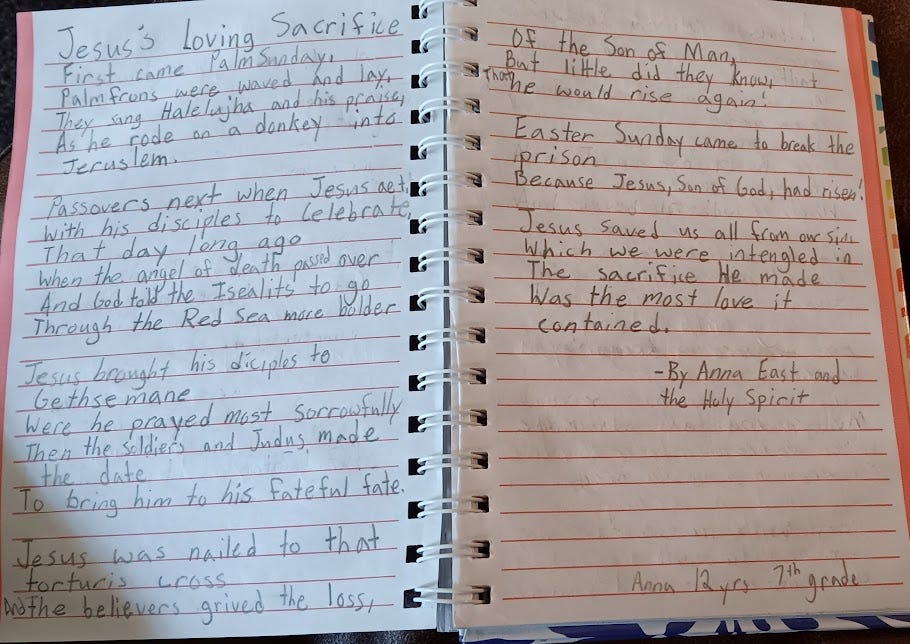 Jesus's Loving Sacrifice
First came Palm Sunday,
Palm fruns were waved and lay,
They sang Halelujha and his praise,
As he rode on a donkey into
Jeruslem.
Passovers next when Jesus aet,
With his disciples to celebrate,
That day long ago
When the angel of death passed over
And God told the Isealits to go
Through the Red Sea more bolder
Jesus brought his diciples to
Gethsemane
Were he prayed most sorrowfully
Then the soldiers and Judus made
the date
To bring him to his fateful fate.
Jesus was nailed to that
torturis cross
And the believers grived the loss,
Of the Son of Man,
But little did they know, that
That he would rise again!
Easter Sunday came to break the
prison
Because Jesus, Son of God, had risen!
Jesus saved us all from our sin
Which we were intengled in
The sacrifice He made
Was the most love it
contained.
-By Anna East and
the Holy Spirit
Anna 12 yrs 7th grade